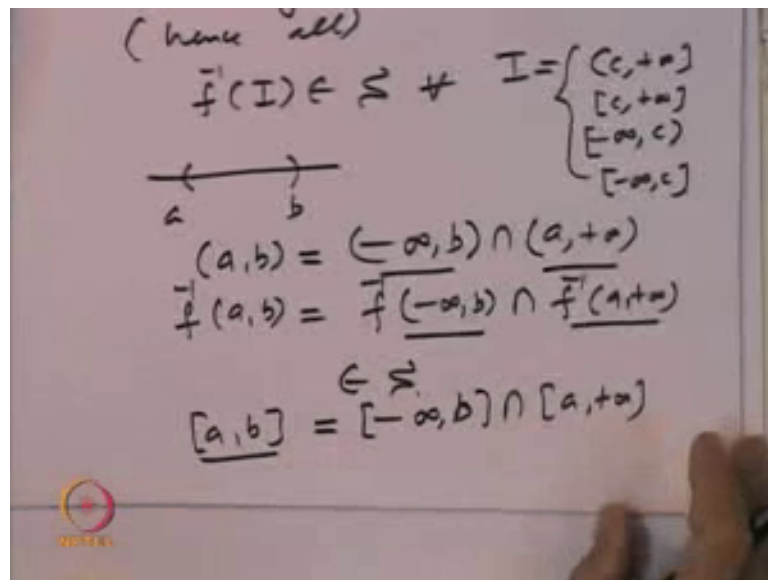 (hence all)
f⁻¹(I) ∈ S ∀ I = { (c, +∞]
[c, +∞]
[-∞, c)
[-∞, c]
a b
(a, b) = (-∞, b) ∩ (a, +∞)
f⁻¹(a, b) = f⁻¹(-∞, b) ∩ f⁻¹(a, +∞)
∈ S.
[a, b] = [-∞, b] ∩ [a, +∞]
NPTEL